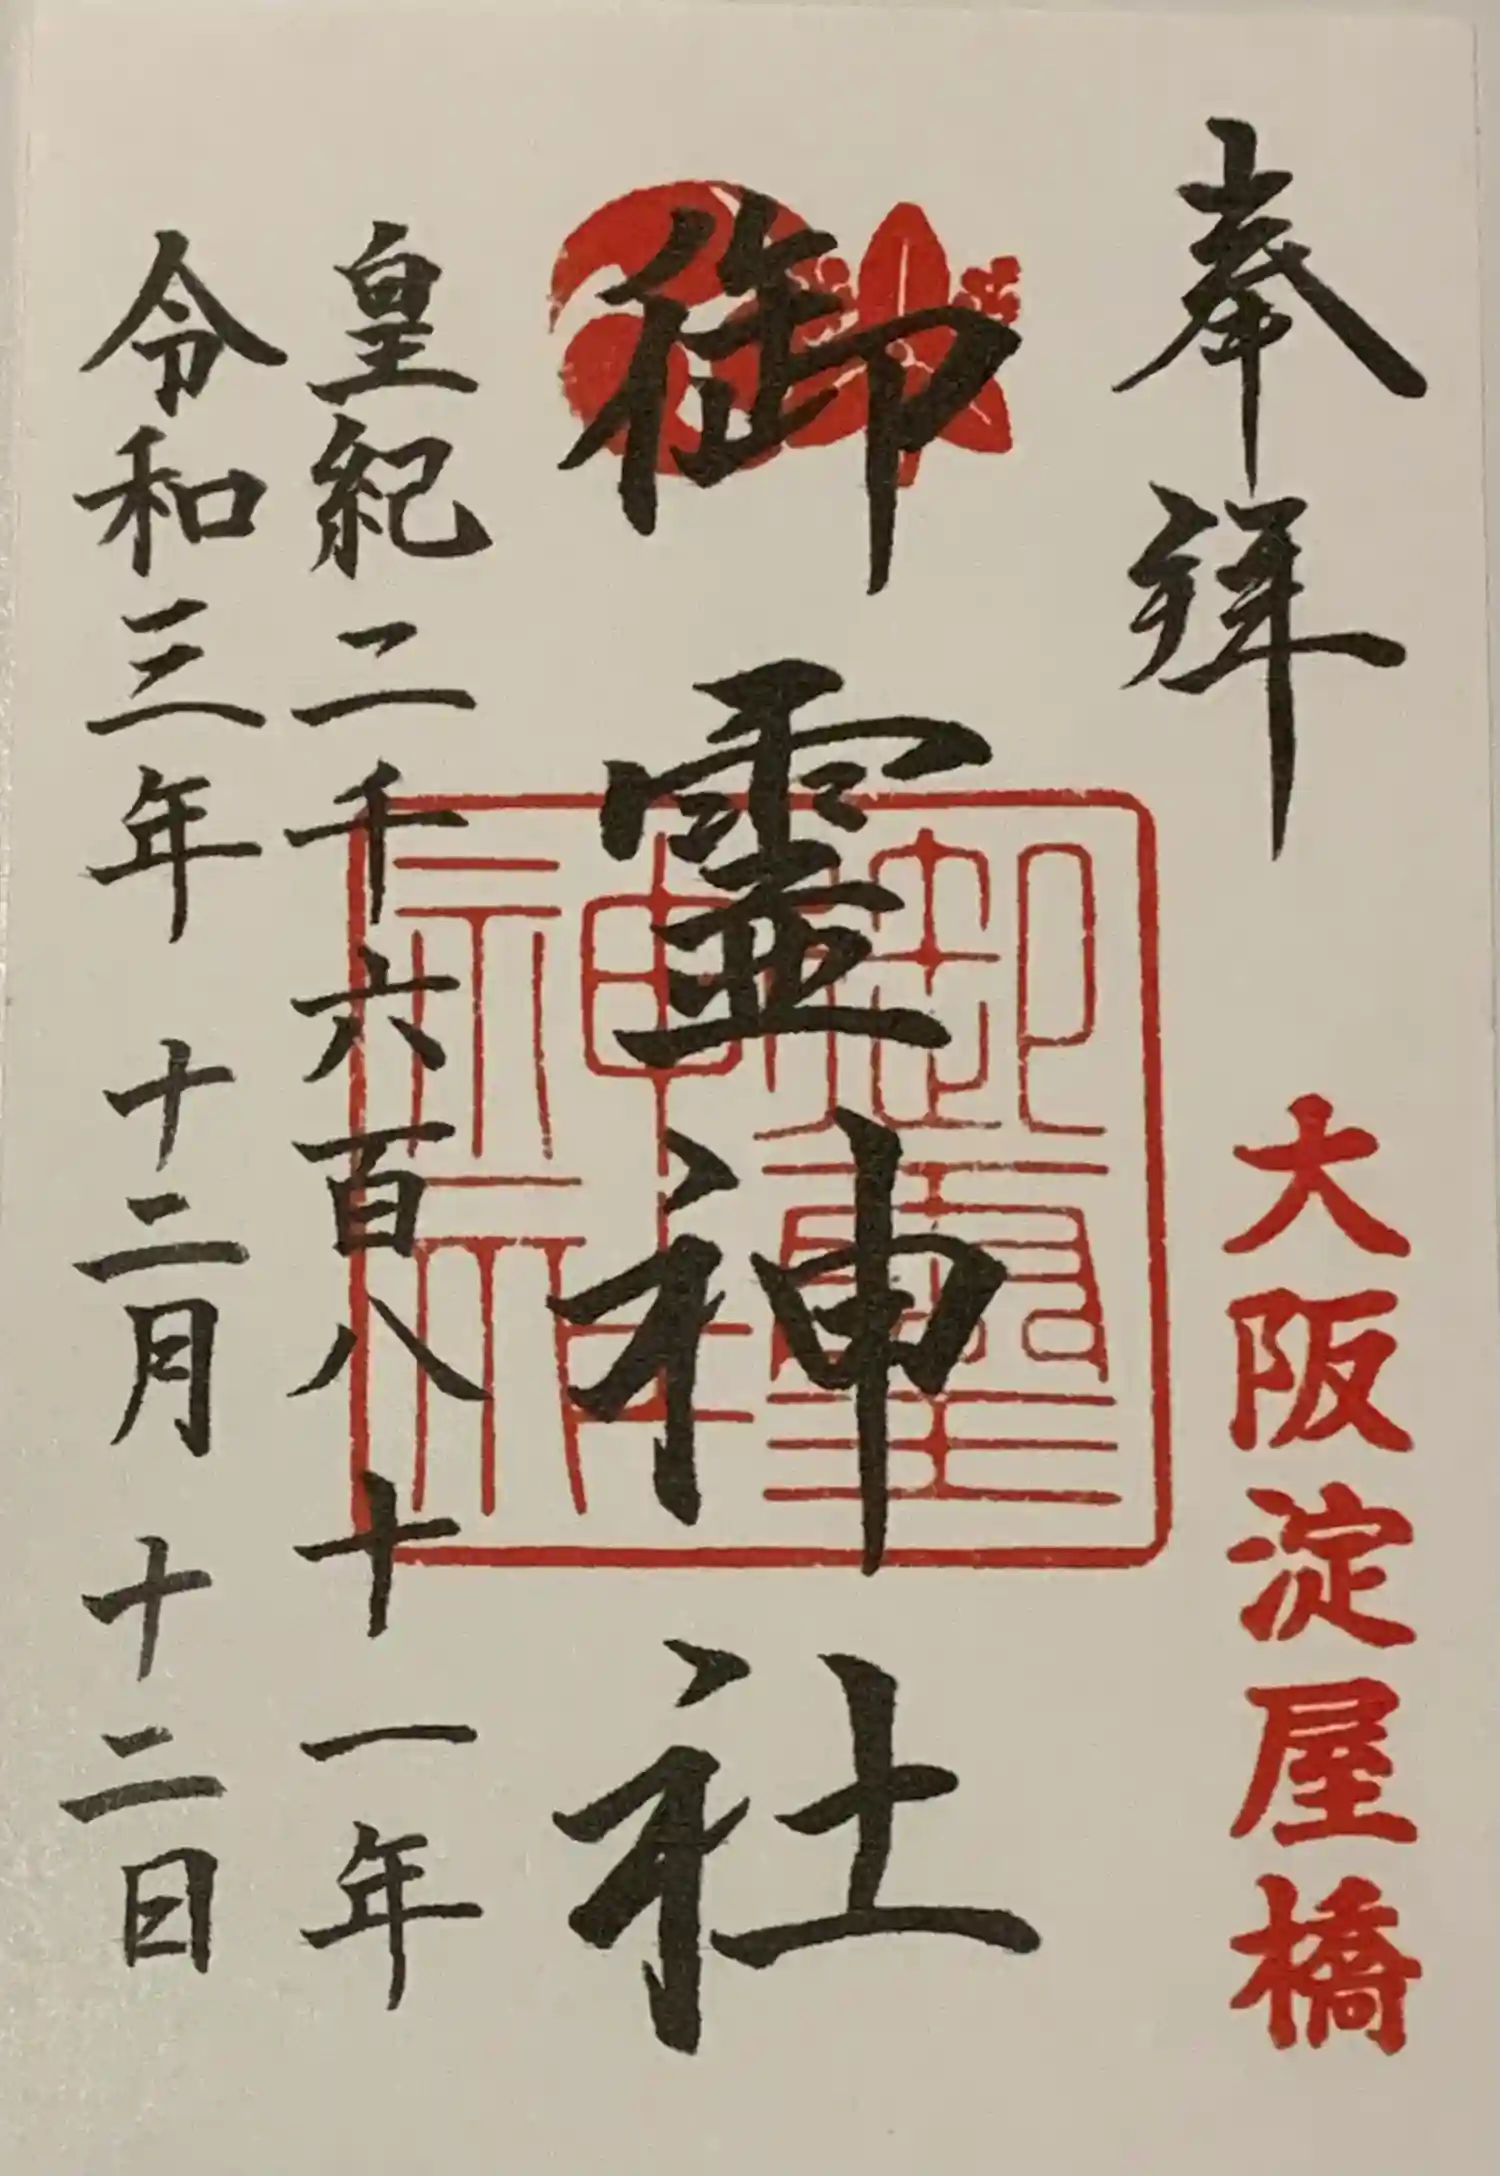 奉拜
大阪淀屋橋
御靈神社
御靈神社
皇紀二千六百八十一年
令和三年 十二月 十二日